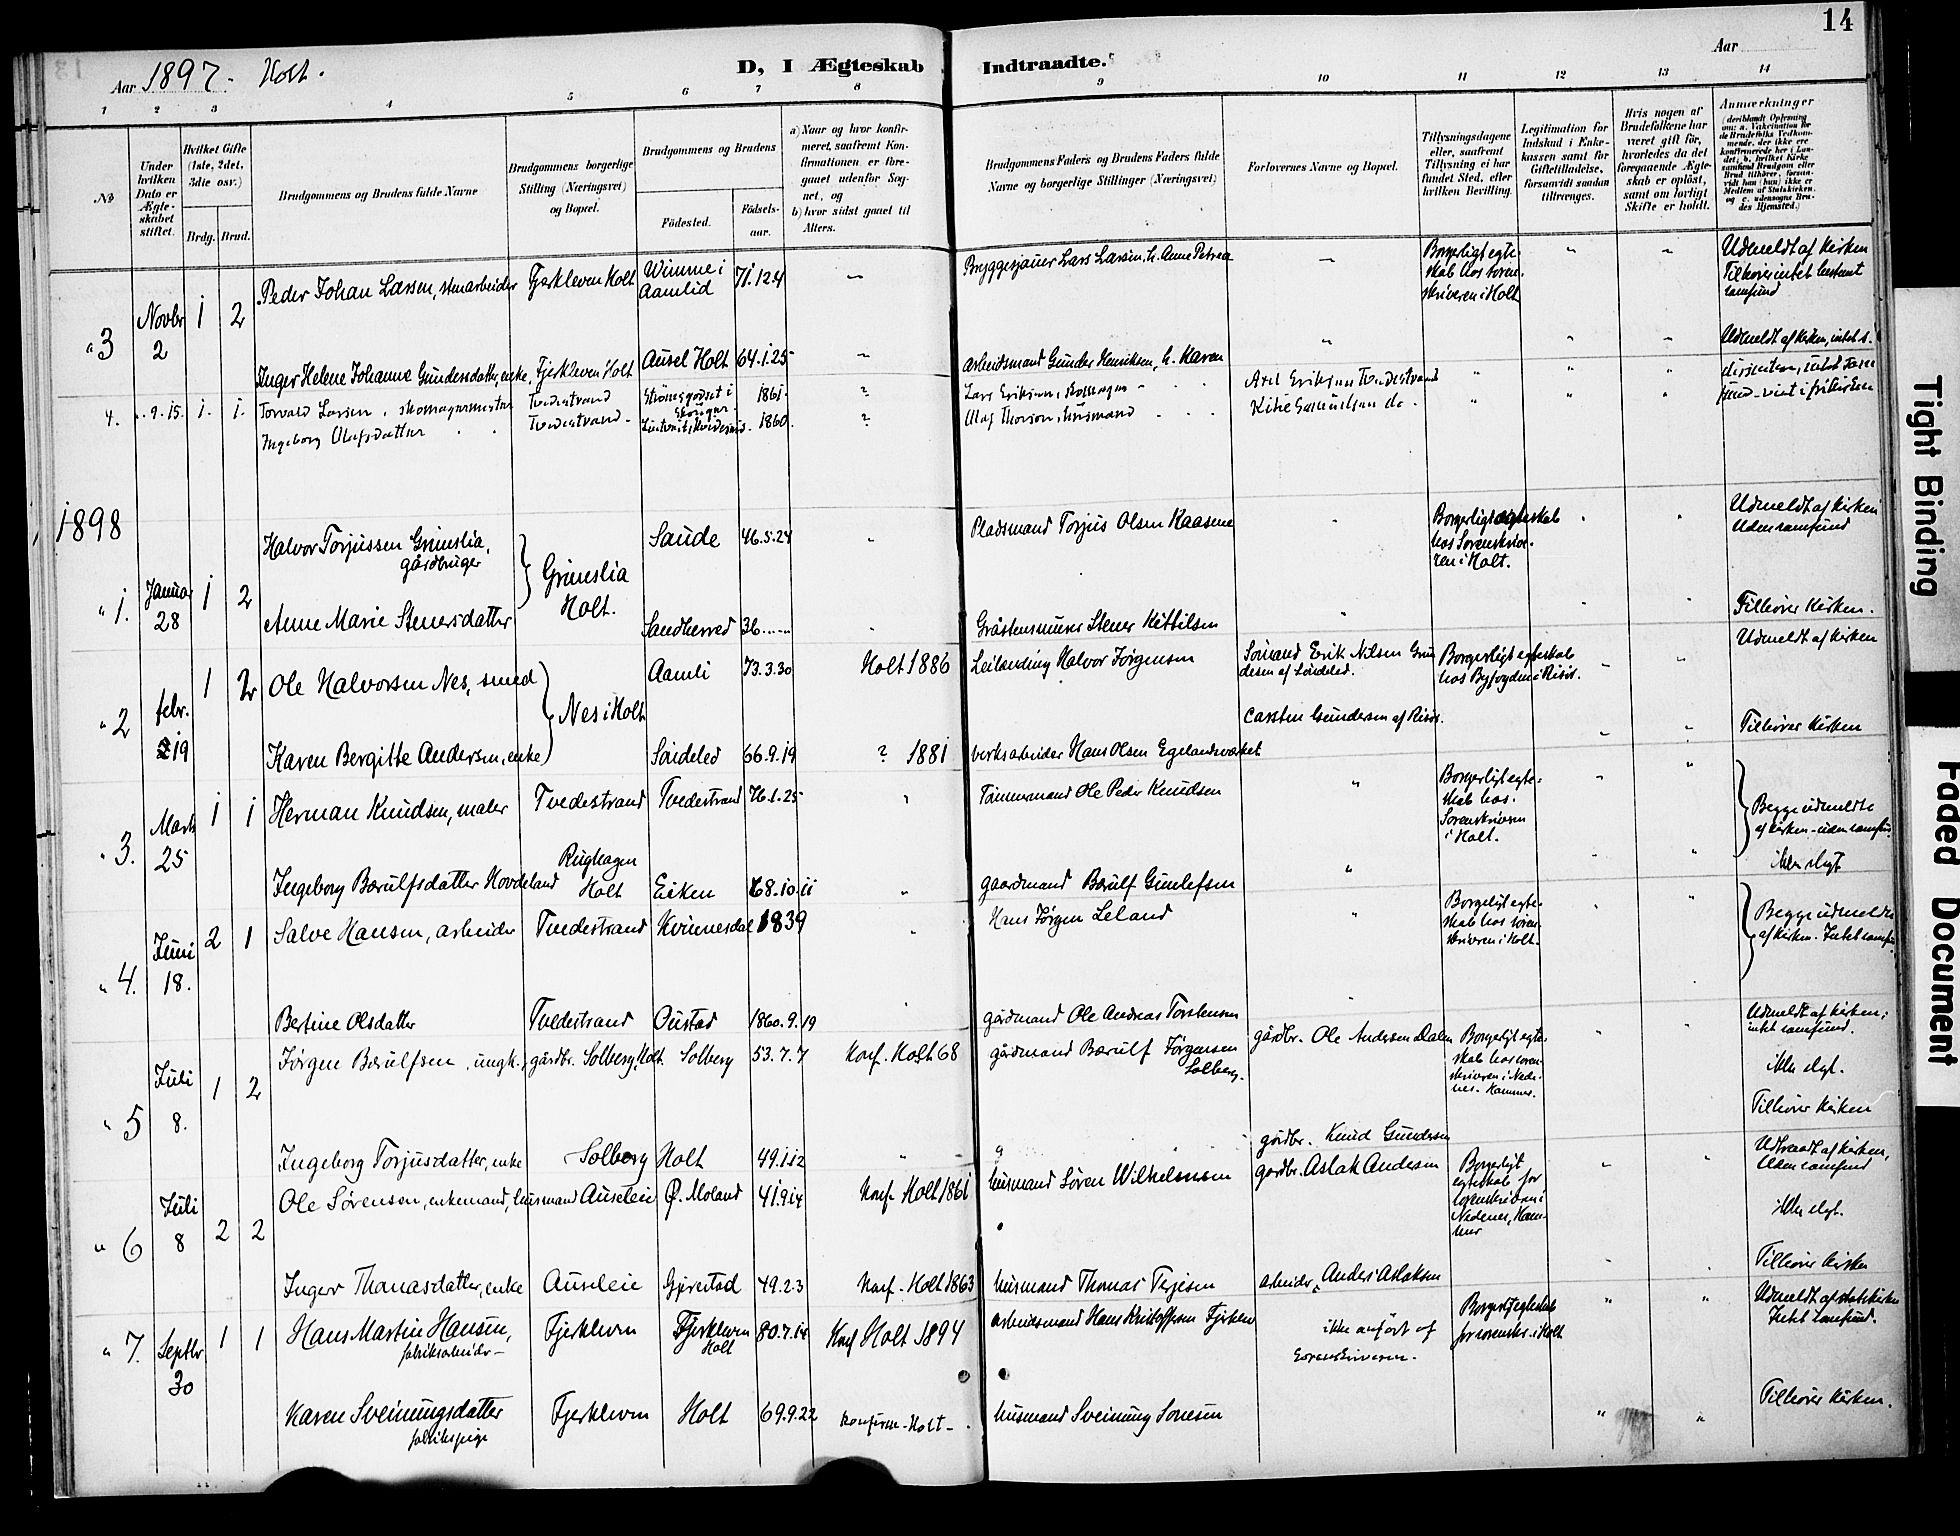 14
Aar 1897. Holt.
D, I Ægteskab Indtraadte.
Aar
1 2 3 4 5 6 7 8 9 10 11 12 13 14
No
Under hvilken Dato er Ægteskabet stiftet.
Hvilket Gifte (1ste, 2det, 3die osv.)
Brdg. Brud.
Brudgommens og Brudens fulde Navne
Brudgommens borgerlige Stilling (Næringsvei) og Bopæl.
Brudgommens og Brudens
Fødested. Fødselsaar.
a) Naar og hvor konfirmeret, saafremt Konfirmationen er foregaaet udenfor Sognet, og
b) hvor sidst gaaet til Alters.
Brudgommens Faders og Brudens Faders fulde Navne og borgerlige Stillinger (Næringsvei)
Forlovernes Navne og Bopæl.
Tillysningsdagene eller, saafremt Tillysning ei har fundet Sted, efter hvilken Bevilling.
Legitimation for Indskud i Enkekassen samt for Giftetilladelse, forsaavidt saadan tiltrænges.
Hvis nogen af Brudefolkene har været gift før, hvorledes da det foregaaende Ægteskab er opløst, samt om lovligt Skifte er holdt.
Anmærkninger
(deriblandt Oplysning om: a. Vakcination for de Brudefolks Vedkommende, der ikke ere konfirmerede her i Landet; b. hvilket Kirkesamfund Brudgom eller Brud tilhører, forsaavidt han (hun) ikke er Medlem af Statskirken, og c. udensogns Brudes Hjemsted.)
" 3 Novbr 2 1 2 Peder Johan Larsen, stenarbeider Fjerkleven Holt Wimme i Aamlid 71.12.4 " Bryggesjauer Lars Larsen, h. Anne Petrea " Borgerligt egteskab hos sorenskriveren i Holt " " Udmeldt af Kirken Tilhører intet bestemt samfund
Inger Helene Johanne Gundersdatter, enke, Fjerkleven Holt Ausel Holt 64.1.25 " arbeidsmand Gunder Henriksen, h. Karen " " " Udmeldt af Kirken, intet s.
4. " 9. 15. 1. 1. Torvald Larsen, skomagermester Tvedestrand Strømsgodset i 1861. ? Lars Eriksen, skomager Axel Eriksen Tvedestrand " " "
Ingeborg Olafsdatter " " Tvedestrand 1860. ? Olaf Thorson, husmand do. " " "
1898
" 1. Januar 28 1 2 Halvor Torjussen Grimslia, gårdbruger Grimslia Holt. Saude 46.5.24 " Pladsmand Torjus Olsen Kaasene " Borgerligt egteskab hos Sorenskriveren i Holt. " " Udmeldt af Kirken Uden samfund
Anne Marie Stenersdatter Sandherred 36...... " Gråstensmurer Stener Kittilsen " " " Tilhører Kirken.
" 2 febr. 19 1 2 Ole Halvorsen Nes, smed Nes i Holt Aamli 73.3.30 Holt 1886 Leilænding Halvor Jørgensen Sømand Erik Nilsen Gundesen af Søndeled. Borgerligt egteskab hos Byfogden i Risør. " " Udmeldt af Kirken
Karen Bergitte Andersen, enke Søndeled 66.9.19 ? 1881 verksarbeider Hans Olsen Egelandsværket Carsten Gundersen af Risør. " " Tilhører Kirken
" 3. Marts 25 1 1 Herman Knudsen, maler Tvedestrand Tvedestrand 76.1.25 " Tømmermand Ole Peder Knudsen " Borgerligt egteskab hos Sorenskriveren i Holt. " " Begge udmeldte af kirken - uden samfund
Ingeborg Bærulfsdatter Hovdeland Rughagen Holt Eiken 68.10.11 " gaardmand Bærulf Gunlefsen " " " ikke slegt
" 4. Juni 18. 2 1 Salve Hansen, arbeider Tvedestrand Kvinnesdal 1839 " Hans Jørgen Leland " Borgerligt egteskab hos sorenskriveren i Holt. " " Begge udmeldte af kirken. Intet samfund
Bertine Olsdatter Tvedestrand Oustad 1860.9.19 " gårdmand Ole Andreas Torstensen "
" 5 Juli 8. 1 2 Jørgen Bærulfsen, ungk., gårdbr. Solberg, Holt. Solberg 53.7.7 Konf. Holt 68 gårdmand Bærulf Jørgensen Solberg. gårdbr. Ole Andersen Dalen Borgerligt egteskab hos sorenskriveren i Nedenes. Hammer. " " Udmeldt af Kirken, intet samfund. ikke slegt.
Ingeborg Torjusdatter, enke Solberg Holt 49.1.12 " " gårdbr. Knud Gundersen Tilhører Kirken
" 6 Juli 8 2 2 Ole Sørensen, enkemand, husmand Auseleie Ø. Moland 41.9.14 Konf. Holt 1861 husmand Søren Wilhelmsen gardbr. Aslak Andersen Borgerligt egteskab for sorenskriveren i Nedenes, Hammer " " Udtraadt af Kirken, Uden samfund ikke slegt.
Inger Thomasdatter, enke Auseleie Gjerestad 49.2.3 Konf. Holt 1863 husmand Thomas Terjesen arbeider Anders Aslaksen " " Tilhører Kirken
" 7. Septbr 30 1 1 Hans Martin Hansen, fabriksarbeider Fjerkleven Fjerkleven Holt 80.7.14 Konf Holt 1894 arbeidsmand Hans Kristoffersen Fjerkleven ikke anført af Sorenskriveren. Borgerligt egteskab for sorenskr. i Holt " " Udmeldt af statskirken Intet samfund.
Karen Sveinungsdatter fabrikspige Fjerkleven Holt 69.9.22 Konfirm. Holt husmand Sveinung Sonesen " " Tilhører Kirken.
Tight Binding
Faded Document